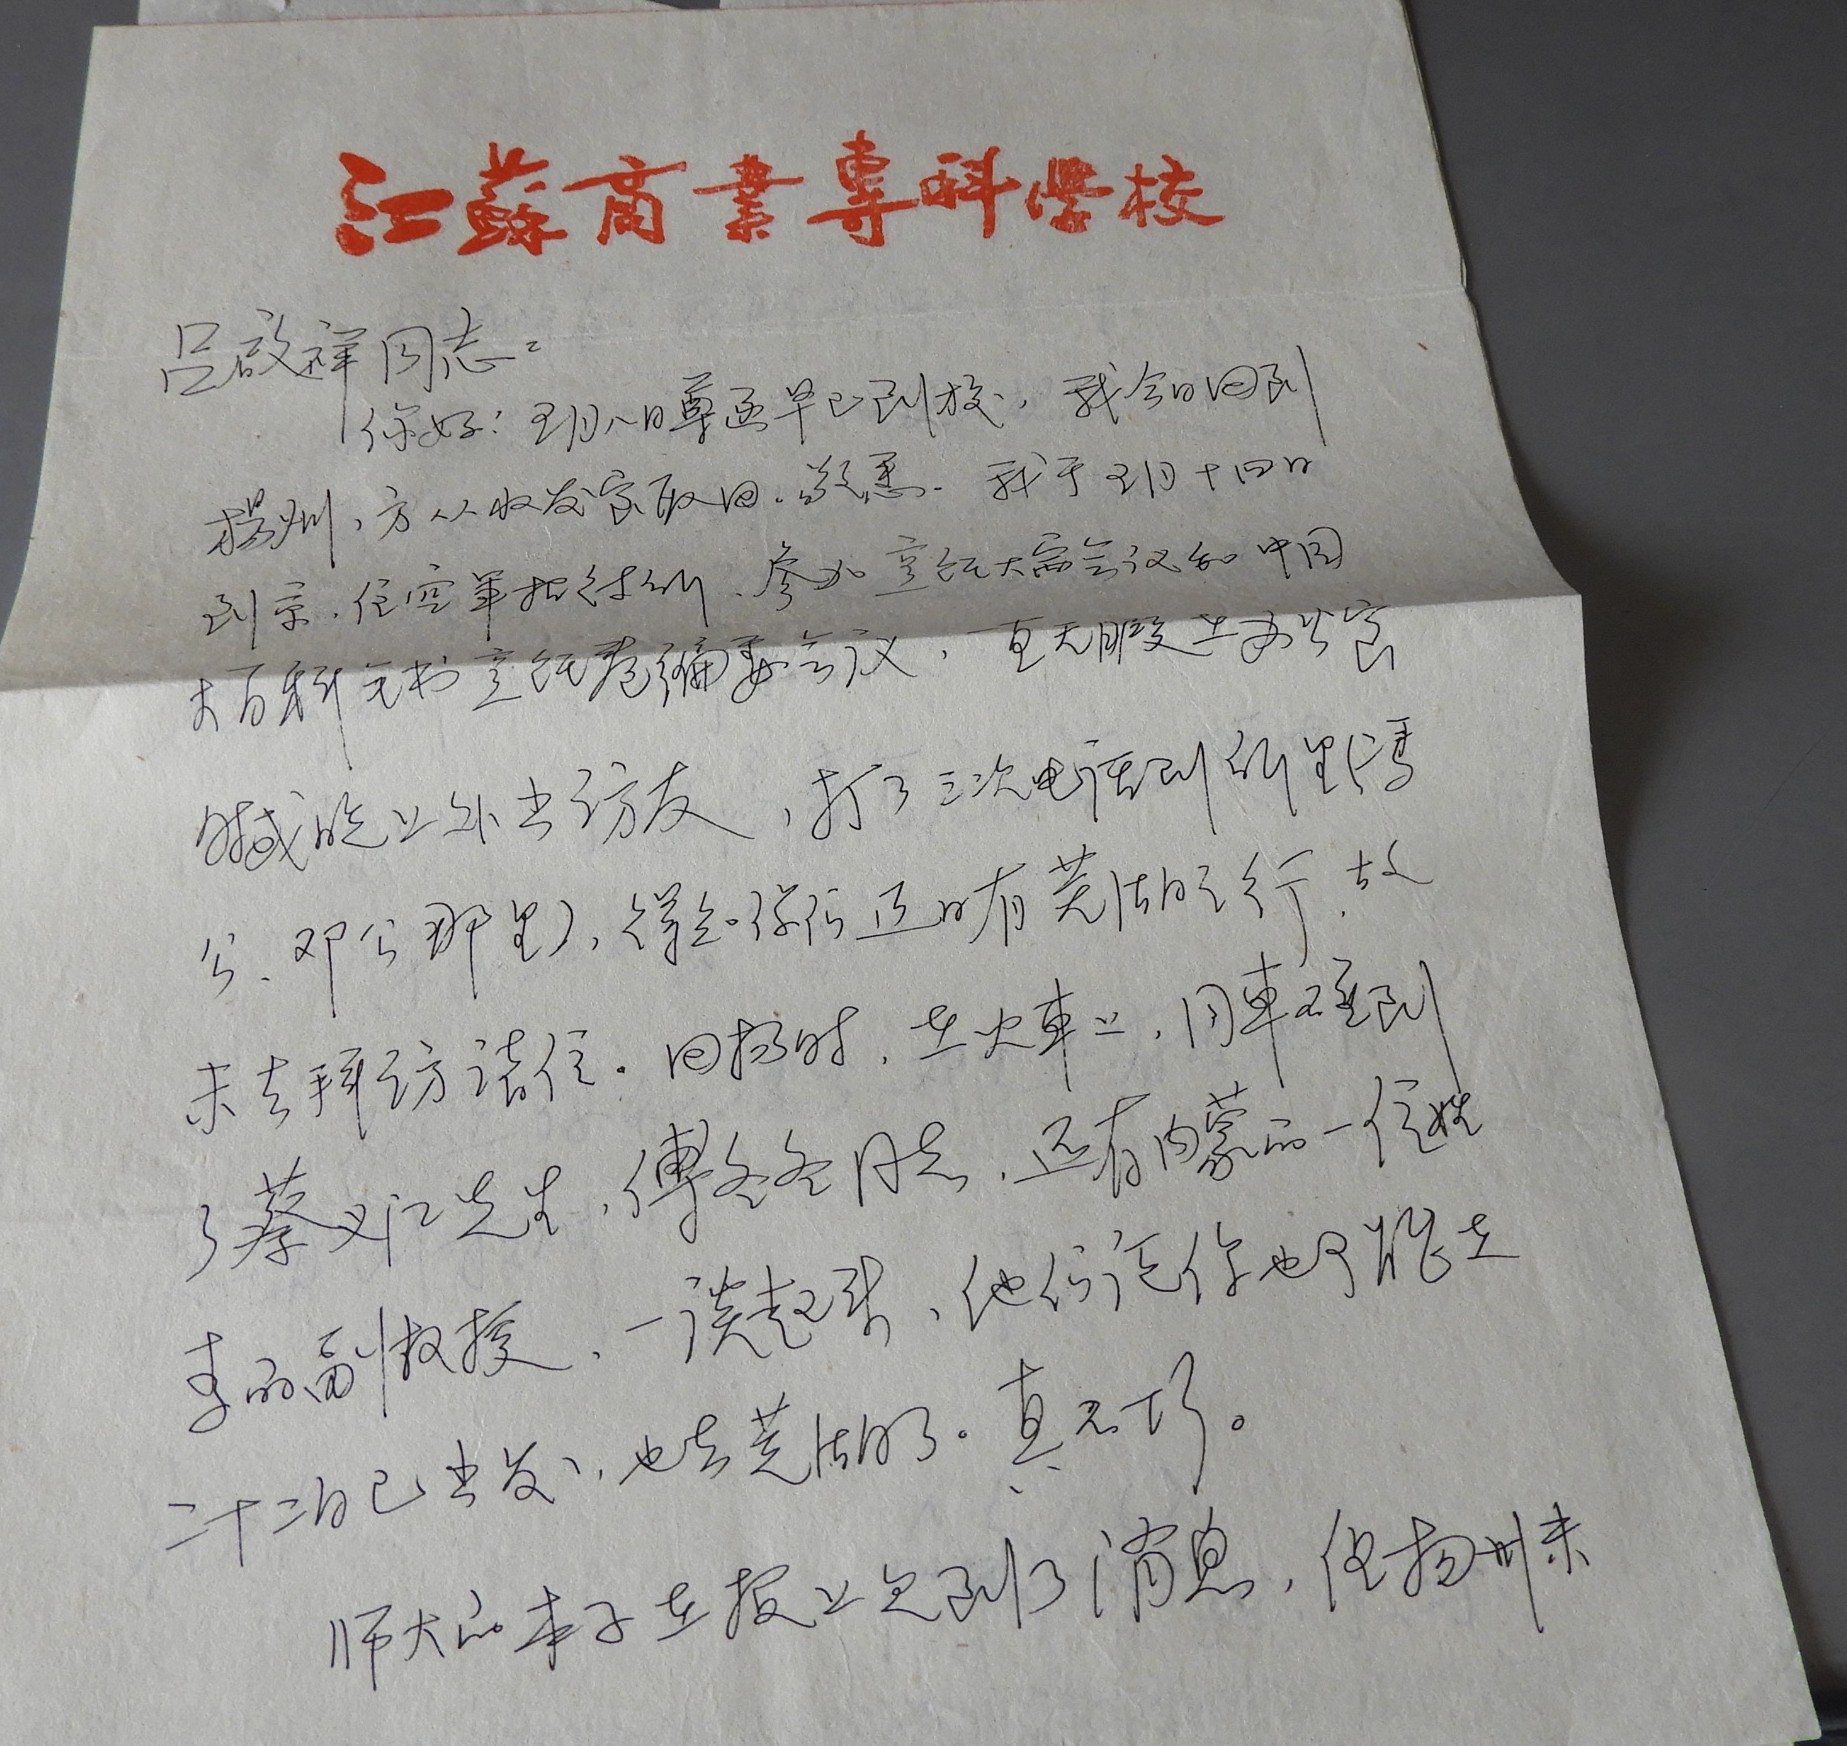 江蘇商業專科学校
吕启祥同志：
你好！五月八日尊函早已到校，我今日回到
扬州，方从收发室取回。敬悉。我于五月十四日
到京，住空军招待所、参加烹饪大赛会议和中国
大百科全书烹饪卷编委会议，一直无暇
时或晚上外出访友，打了三次电话到所里（冯
公、邓公那里），得知你们正有芜湖之行，故
未去拜访诸位。回扬时，在火车上，同车碰到
了蔡义江先生，傅冬冬同志，还有内蒙的一位姓
李的副教授，一谈起来，他们说你也可能在
二十二日已出发，也去芜湖了。真不巧。
师大的本子在报上见到了消息，但扬州未